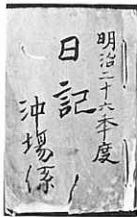 明治二十六年度
日記
沖場係